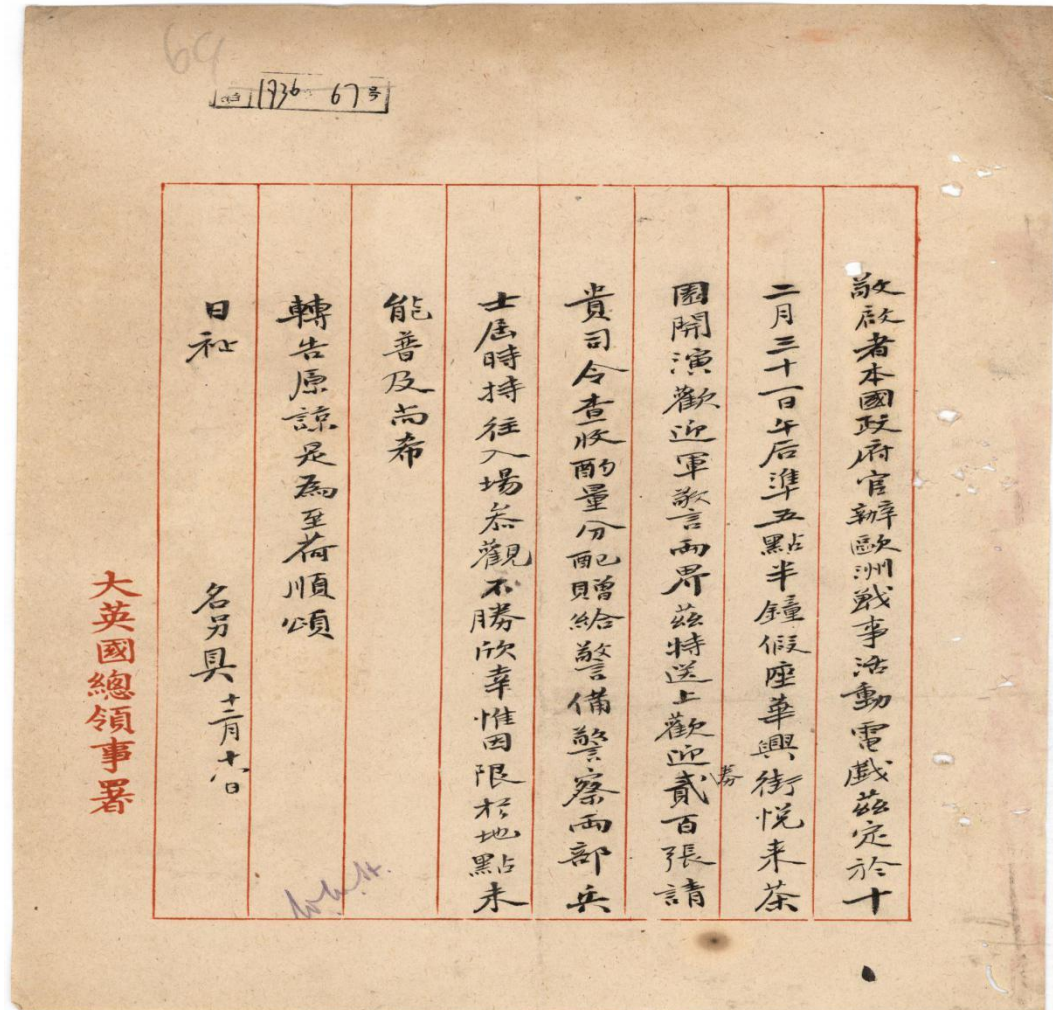 64
1936 67号
敬啟者本國政府官辦歐洲戰事活動電戲茲定於十
二月三十一日午后準五點半鐘假座華興街悅来茶
園開演歡迎軍警言兩界茲特送上歡迎券貳百張請
貴司令查收酌量分配贈給警備警察兩部兵
士屆時持往入場叅觀不勝欣幸惟因限於地點未
能普及尚希
轉告原諒是為至荷順頌
日祉 名另具 十二月十八日
大英國總領事署